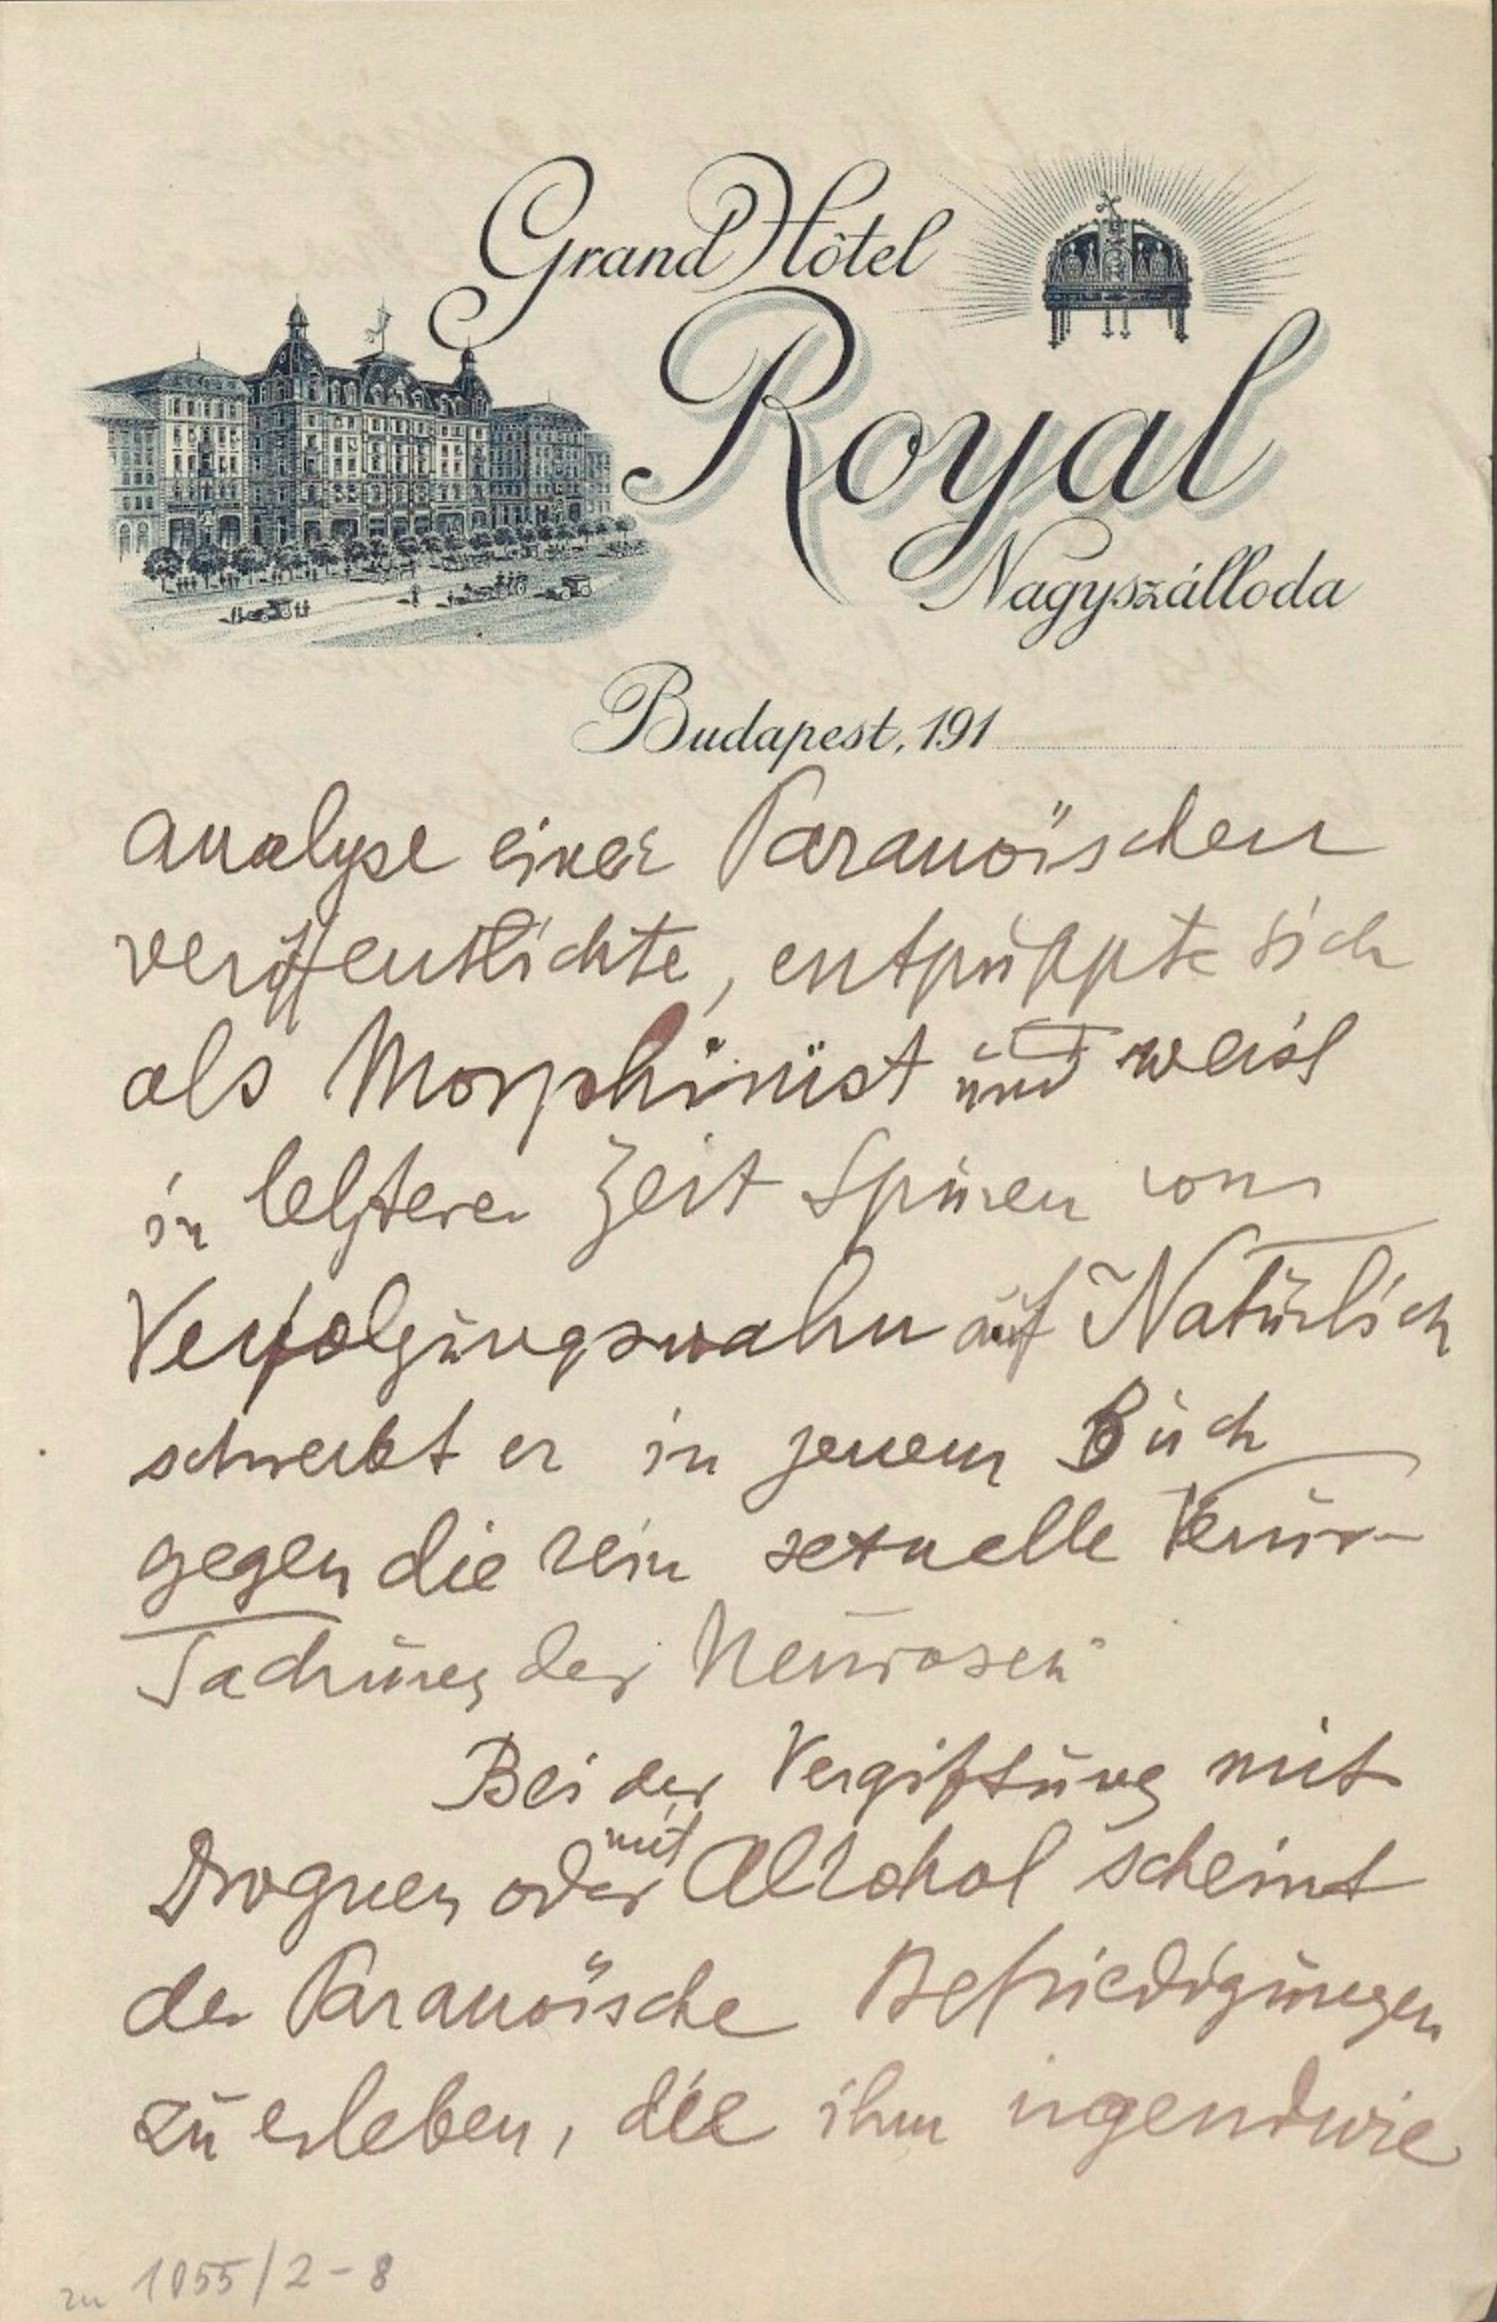 Grand Hôtel
Royal
Nagyszálloda
Budapest, 191
analyse einer Paranoïschen
veröffentlichte, entpuppte sich
als Morphinist und weist
in letzterer Zeit Spuren von
Verfolgungswahn auf Natürlich
schreibt er in jenem Buch
gegen die rein sexuelle Verur-
sachung der Neurosen.
Bei der Vergiftung mit
mit
Droguen oder Alkohol scheint
der Paranoïsche Befriedigungen
zu erleben, die ihm irgendwie
zu 1055/2-8